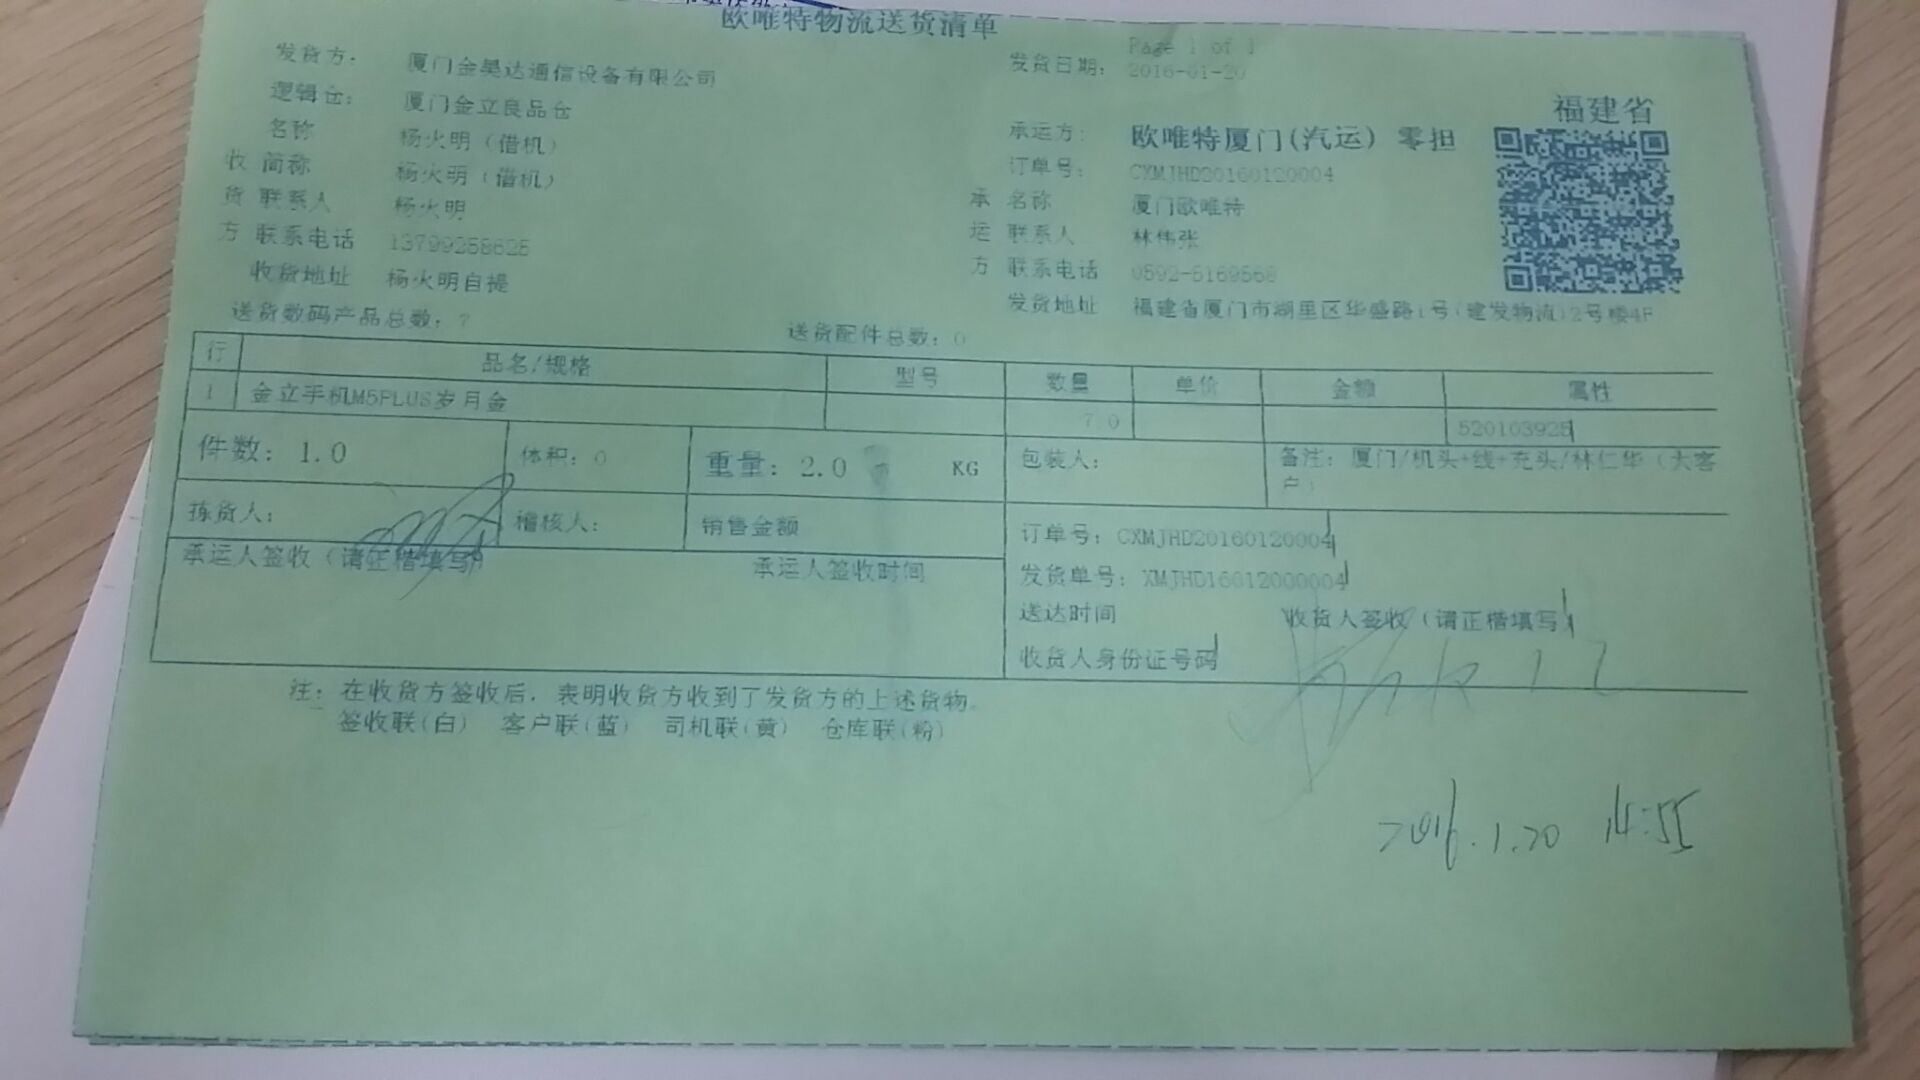 欧唯特物流送货清单
Page 1 of 1
发货方: 厦门金昊达通信设备有限公司
发货日期: 2016-01-20
逻辑仓: 厦门金立良品仓
福建省
名称 杨火明（借机）
承运方: 欧唯特厦门(汽运) 零担
收 简称 杨火明（借机）
订单号: CXMJHD20160120004
货 联系人 杨火明
承 名称 厦门欧唯特
方 联系电话 13799258625
运 联系人 林伟张
收货地址 杨火明自提
方 联系电话 0592-5169568
发货地址 福建省厦门市湖里区华盛路1号(建发物流)2号楼4F
送货数码产品总数: 7
送货配件总数: 0
行 品名/规格 型号 数量 单价 金额 属性
1 金立手机M5PLUS岁月金 7.0 520103925
件数: 1.0 体积: 0 重量: 2.0 KG 包装人: 备注: 厦门/机头+线+充头/林仁华（大客
户）
拣货人: 稽核人: 销售金额
订单号: CXMJHD20160120004
承运人签收（请正楷填写） 承运人签收时间
发货单号: XMJHD16012000004
送达时间 收货人签收（请正楷填写）
收货人身份证号码
注: 在收货方签收后，表明收货方收到了发货方的上述货物。
签收联(白) 客户联(蓝) 司机联(黄) 仓库联(粉)
2016.1.20 14:55